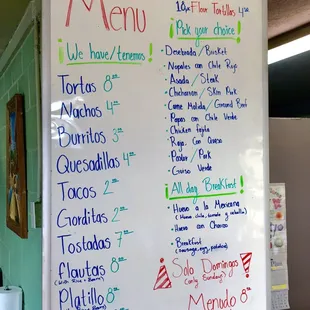 Menu
¡We have/tenemos!
Tortas 8
Nachos 4
Burritos 3
Quesadillas 4
Tacos 2
Gorditas 2
Tostadas 7
flautas 8
Platillo 8
10 Flour Tortillas 4
¡Pick your choice!
- Deshebrada / Brisket
- Nopales con Chile Rojo
- Asada / Steak
- Chicharron / Skin Pork
- Carne Molida / Ground Beef
- Papas con Chile Verde
- Chicken fajita
- Rajas con Queso
- Pastor / Pork
- Guiso Verde
¡All day Breakfast!
- Huevo a la Mexicana
(Huevo, chile, tomate y cebolla)
- Huevo con Chorizo
- Breakfast
(Sausage, egg, potatoes)
Solo Domingos
(only Sundays)
Menudo 8